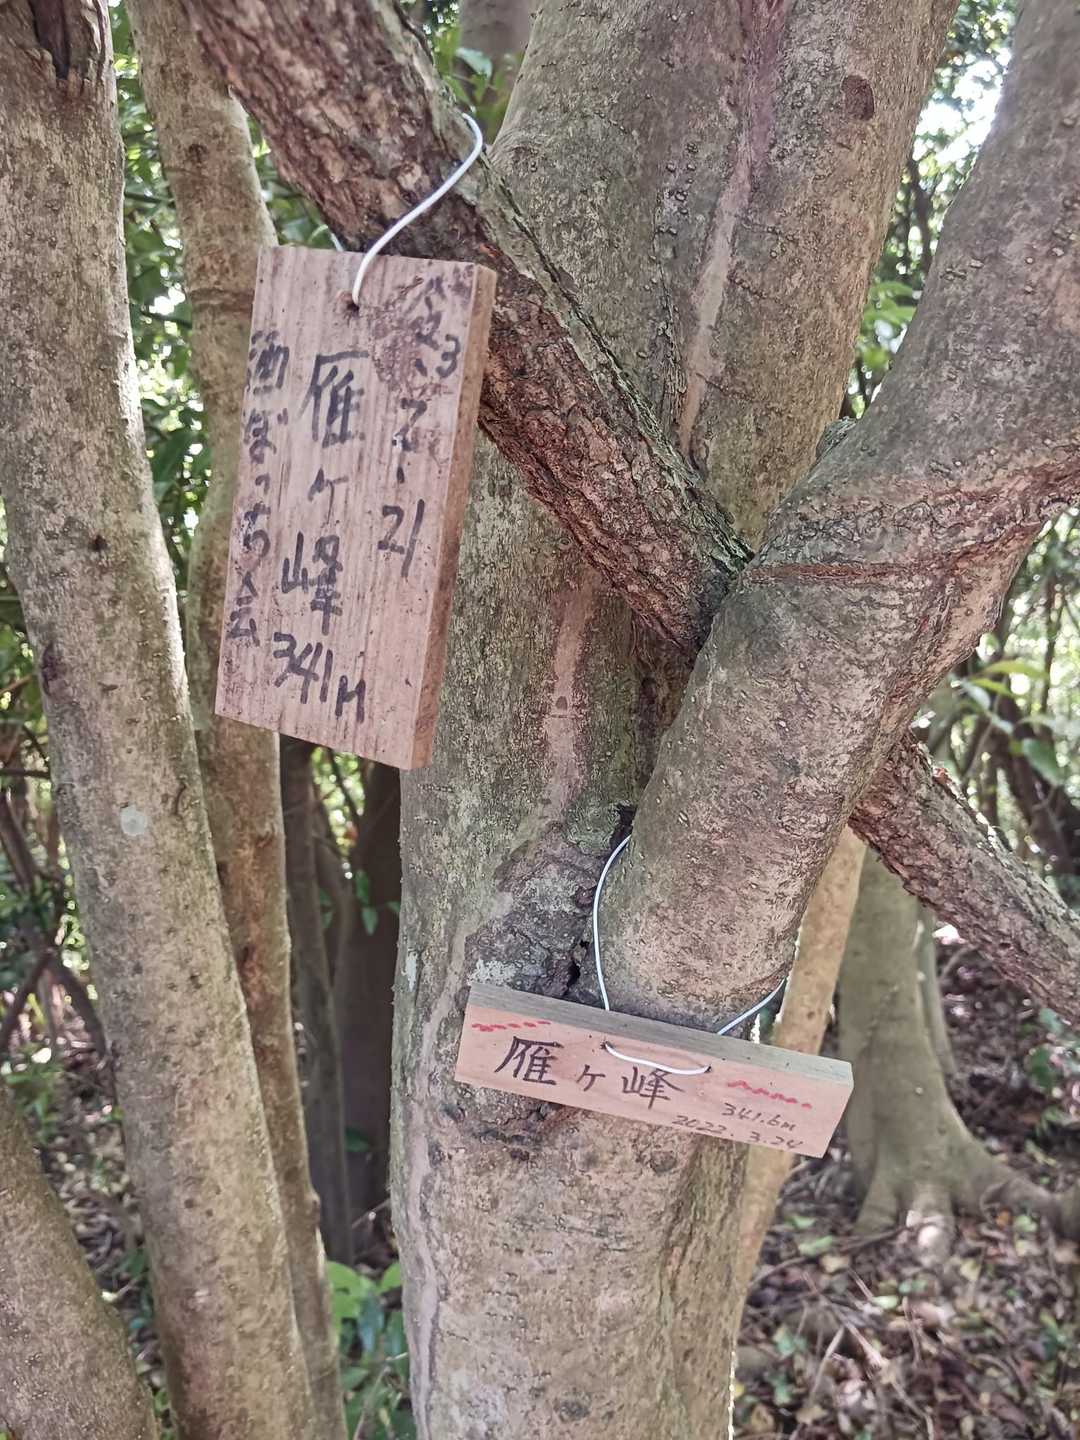 雁ヶ峰
341M
酒ぼっち会
雁ヶ峰
341.6m
2022.3.24